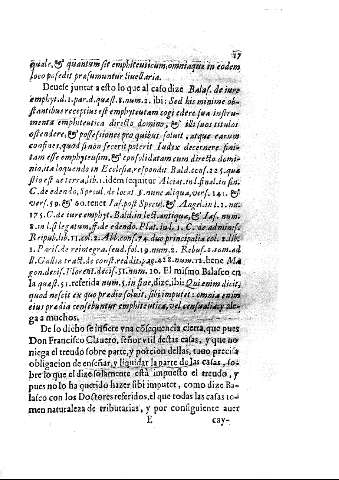 quale, & quantum sit emphiteuticum, omniaque in eodem
loco posedit præsumuntur livellaria.
Deuese juntar a esto lo que al caso dize Balas. de iure
emphyt. 1. par. d. quæst. 8. num. 2. ibi: Sed his minime ob-
stantibus receptius est emphyteutam cogi edere sua instru-
menta emphiteutica directo domino, & illi suos titulos
ostendere, & possessiones pro quibus soluit, atque earum
confines, quod si non fecerit poterit Iudex decernere fini-
tam esse emphyteusim, & consolidatam cum directo domi-
nio, ita loquendo in Ecclesia, respondit Bald. conf. 225. quæ
stio est ae terra, lib. 1. idem sequitur Alciat. in l. final. in fin.
C. de edendo, Specul. de locat. §. nunc aliqua, vers. 141.
vers. 59. & 60. tenet Ias. post Specul. & Angel. in l. 1. nu.
175. C. de iure emphyt. Bald. in lect. antiquæ, & Ias. num.
2. in l. si legatum, ff. de edendo. Plat. in l. 1. C. de adminis.
Reipub. lib. 11. col. 2. Abb. conf. 74. duo principalia col. 2. lib.
1. Paris. de reintegra. feud. fol. 19. num. 2. Rebus. 2. nom. ad
ll. Gallia tract. de const. reddit. pag. 428. num. 12. bene Ma
gon. decis. Florent. decis. 51. num. 10. El mismo Balasco en
la quæst. 51. referida num. 5. in fine, dize, ibi Qui enim dicit,
quod nescit ex quo prædio soluit, sibi imputet: omnia enim
eius prædia censebuntur emphyteutica, vel censualia; y ale-
ga a muchos.
De lo dicho se infiere vna consequencia cierta, que pues
Don Francisco Clauero, señor vtil destas casas, y que no
niega el treudo sobre parte, y porcion dellas, tuuo precisa
obligacion de enseñar, y liquidar la parte de las casas, so-
bre lo que el dize solamente está impuesto el treudo, y
pues no lo ha querido hazer sibi imputet, como dize Ba-
lasco con los Doctores referidos, el que todas las casas to-
men naturaleza de tributarias, y por consiguiente auer
E cay-